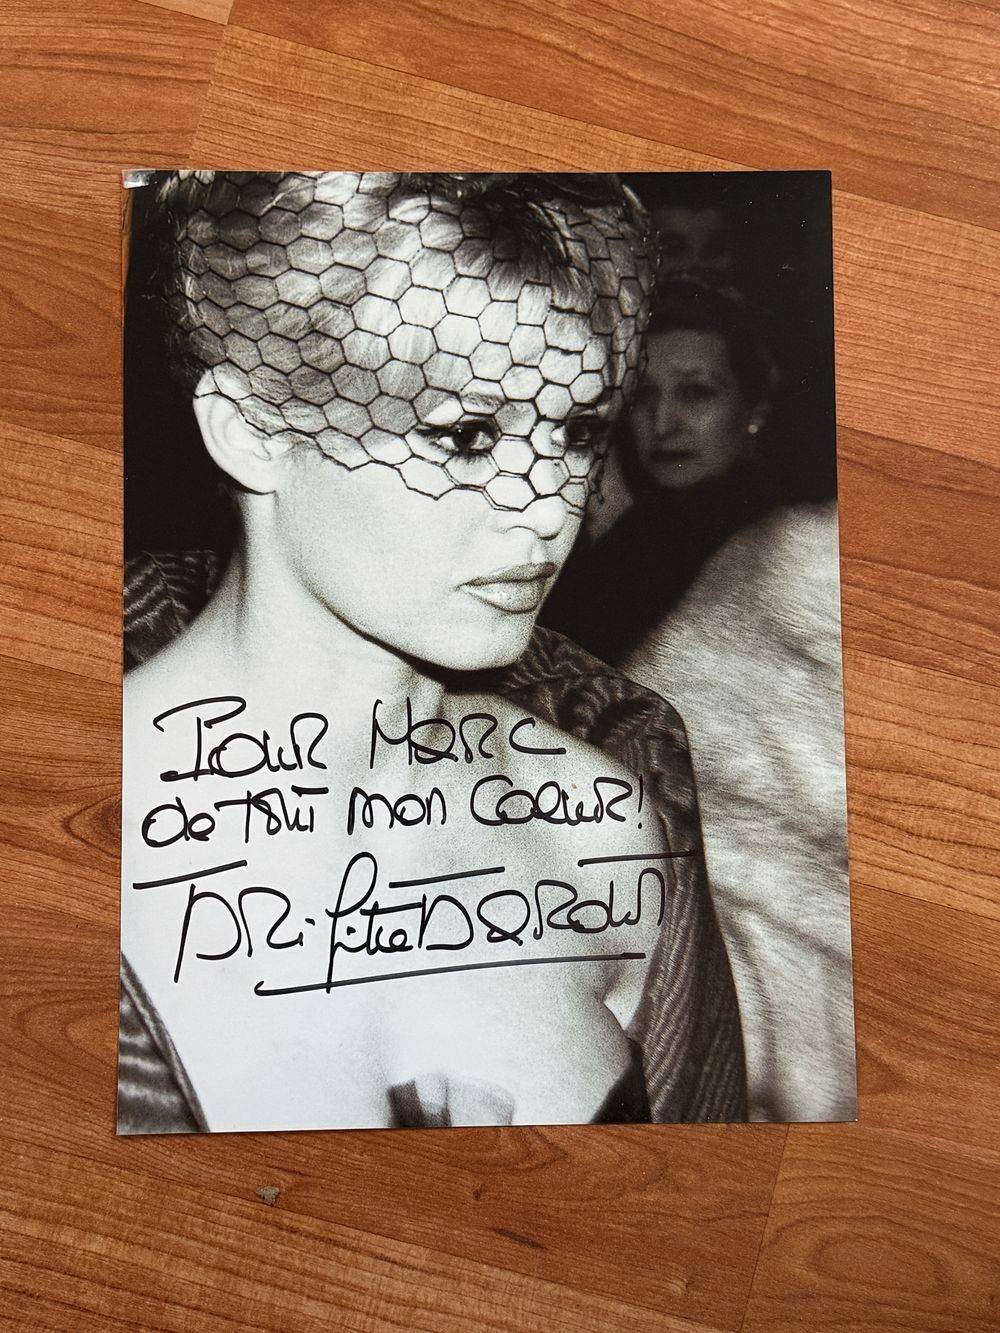 Pour Marc
de tout mon Coeur!
Brigitte Bardot